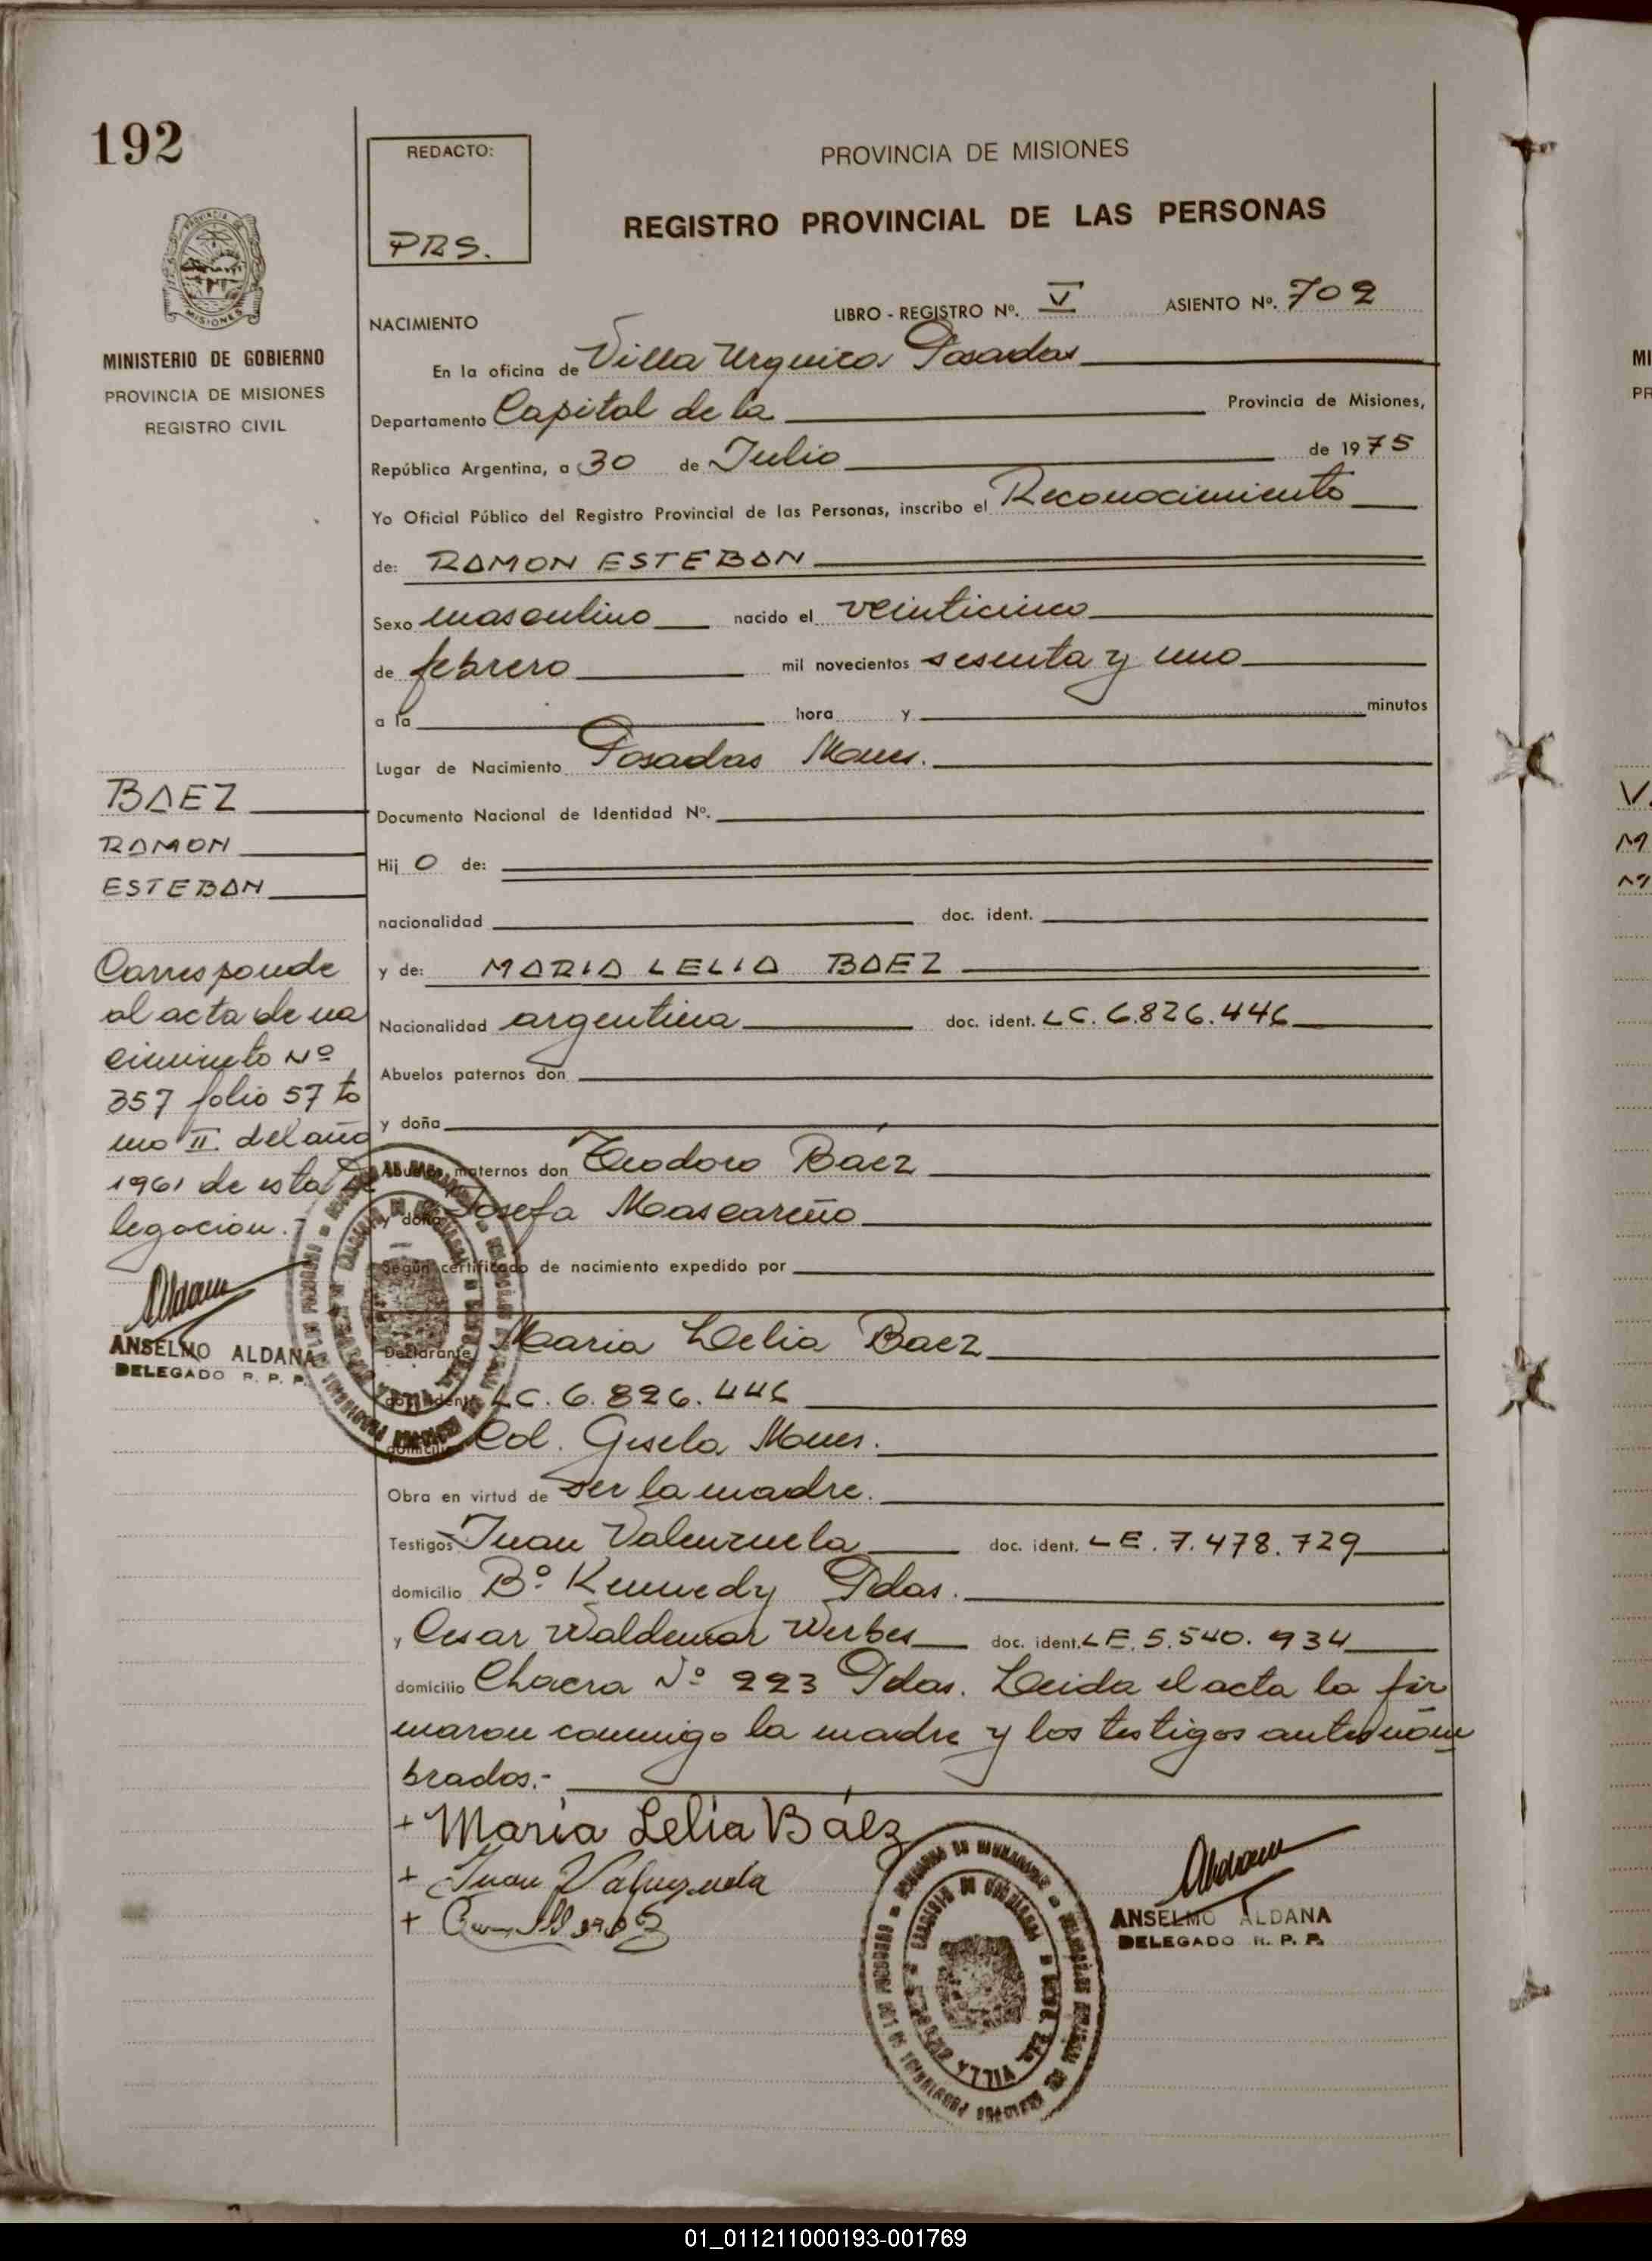 192
REDACTO:
PRS.
PROVINCIA DE MISIONES
REGISTRO PROVINCIAL DE LAS PERSONAS
MISIONES
MINISTERIO DE GOBIERNO
PROVINCIA DE MISIONES
REGISTRO CIVIL
LIBRO - REGISTRO Nº. V ASIENTO Nº. 702
NACIMIENTO
En la oficina de Villa Urquiza Posadas
Departamento Capital de la Provincia de Misiones,
República Argentina, a 30 de Julio de 1975
Yo Oficial Público del Registro Provincial de las Personas, inscribo el Reconocimiento
de: RAMON ESTEBAN
Sexo masculino nacido el veinticinco
de febrero mil novecientos sesenta y uno
a la hora y minutos
Lugar de Nacimiento Posadas Mnes.
Documento Nacional de Identidad Nº.
Hij o de:
nacionalidad doc. ident.
y de: MARIA LELIA BAEZ
Nacionalidad argentina doc. ident. LC. 6.826.446
Abuelos paternos don
y doña
Abuelos maternos don Teodoro Báez
y doña Josefa Mascareño
Según certificado de nacimiento expedido por
Declarante Maria Lelia Baez
doc. ident. LC. 6.826.446
domicilio Col. Gisela Mnes.
Obra en virtud de ser la madre.
Testigos Juan Valenzuela doc. ident. LE. 7.478.729
domicilio Bº Kennedy Pdas.
y Cesar Waldemar Werbes doc. ident. LE. 5.540.934
domicilio Chacra Nº 223 Pdas. Leida el acta la fir
maron conmigo la madre y los testigos antes nom
brados.-
+ María Lelia Báez
+ Juan Valenzuela
+
ANSELMO ALDANA
DELEGADO R. P. P.
BAEZ
RAMON
ESTEBAN
Corresponde
al acta de na
cimiento Nº
357 folio 57 to
mo II. del año
1961 de esta De
legacion.-
ANSELMO ALDANA
DELEGADO R. P. P.
01_011211000193-001769